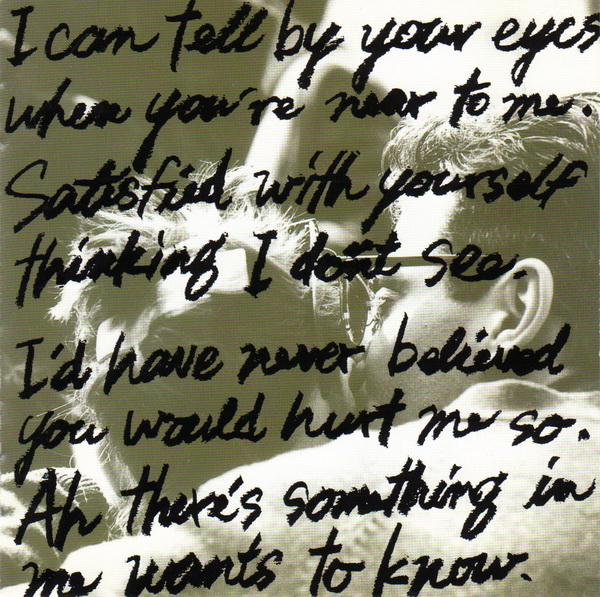 I can tell by your eyes
when you're near to me.
Satisfied with yourself
thinking I don't see.
I'd have never believed
you would hurt me so.
Ah there's something in
me wants to know.